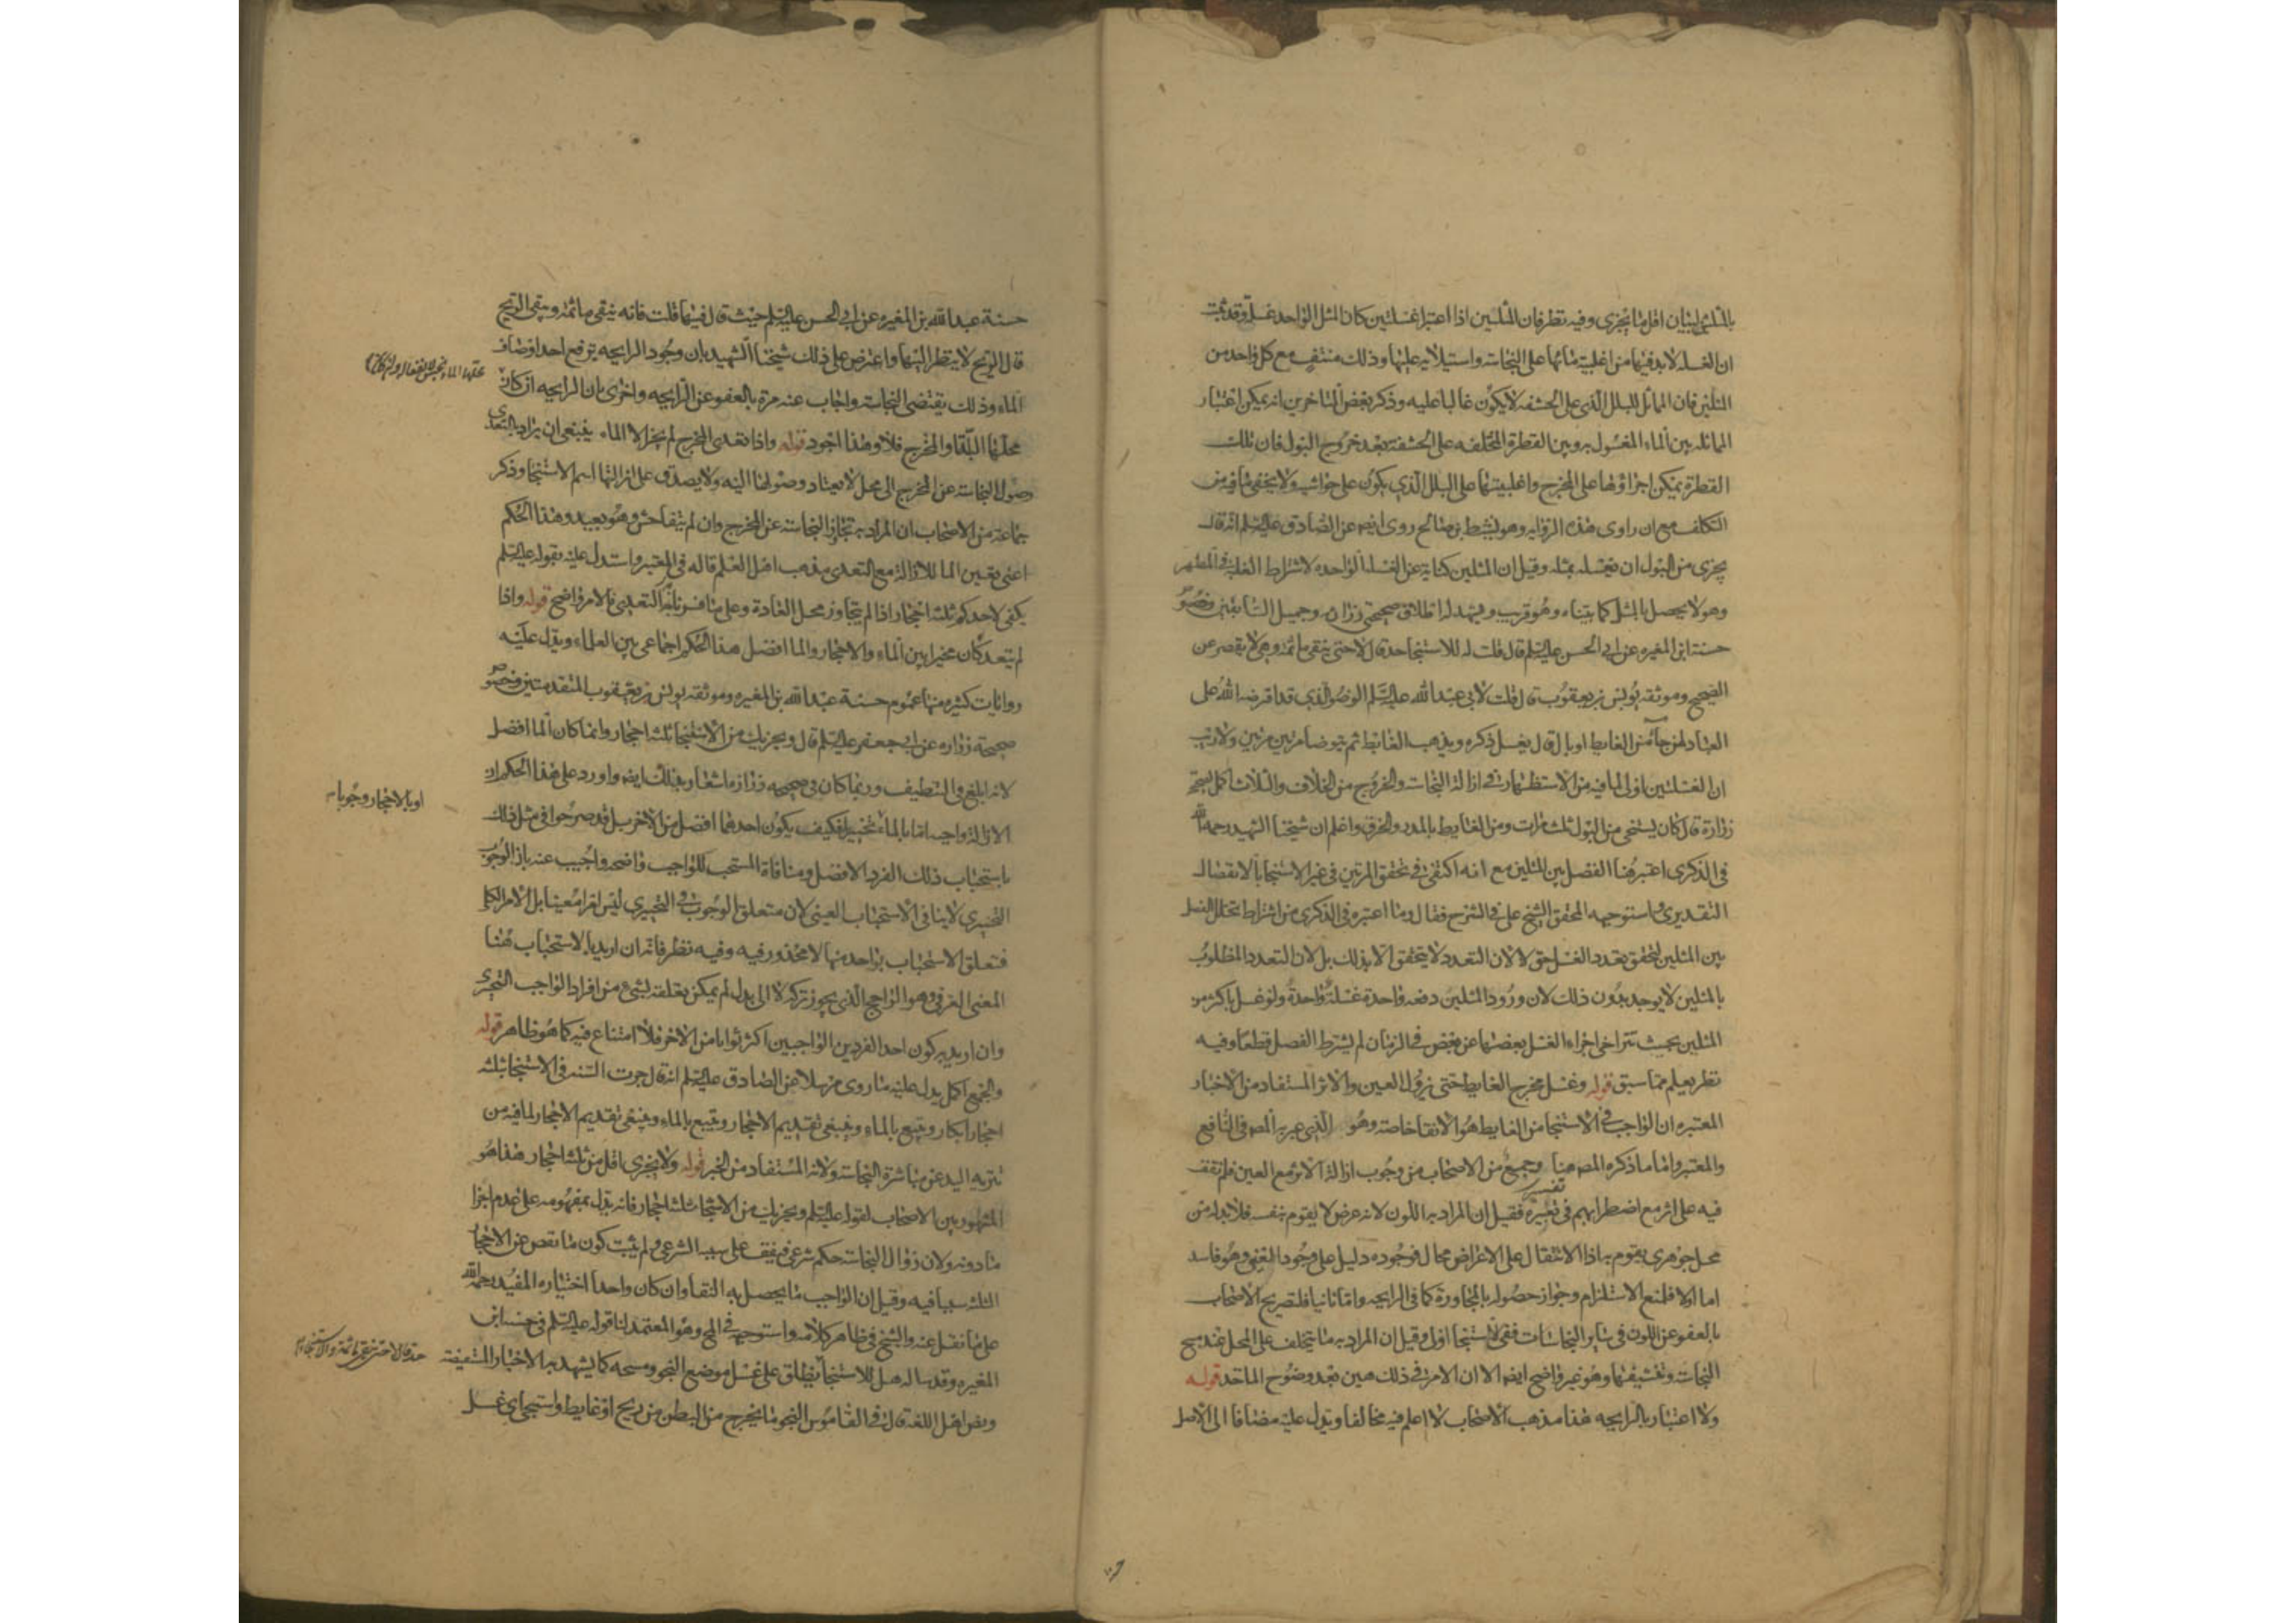 بالمثلين لبيان اقل ما يجزى وفيه نظر فان المثلين اذا اعتبرا غسلتين كان المثل الواحد غسلة وقد ثبت
ان الغسلة لا بد فيها من اغلبية مائها على النجاسة واستيلائه عليها وذلك منتف مع كل واحد من
المثلين فان المماثل للبلل الذى على الحشفه لا يكون غالبا عليه وذكر بعض المتاخرين انه يمكن اعتبار
المماثله بين الماء المغسول به وبين القطرة المتخلفه على الحشفة بعد خروج البول فان تلك
القطرة يمكن اجراؤها على المخرج واغلبيتها على البلل الذي يكون على حواشيه ولا يخفى ما فيه من
التكلف مع ان راوى هذه الروايه وهو نشيط بن صالح روى ايضا عن الصادق عليه السلم انه قال
يجزى من البول ان تغسله بمثله وقيل ان المثلين كناية عن الغسلة الواحده لاشتراط الغلبة فى المطهر
وهو لا يحصل بالمثل كما بيناه وهو قريب ويشهد له اطلاق صحيحتى زرارة وجميل السابقتين وخصوص
حسنة ابن المغيره عن ابى الحسن عليه السلم قال قلت له للاستنجا حد قال لا حتى ينقى ما ثمه وهى لا تقصر عن
الصحيح وموثقه يونس بن يعقوب قال قلت لابى عبد الله عليه السلم الوضو الذي قد افترضه الله على
العباد لمن جآء من الغايط او بال قال يغسل ذكره ويذهب الغايط ثم يتوضا مرتين مرتين ولا ريب
ان الغسلتين اولى لما فيه من الاستظهار فى ازالة النجاسة والخروج من الخلاف والثلاث اكمل لصحيحة
زرارة قال كان يستنجى من البول ثلث مرات ومن الغايط بالمدر والخرق واعلم ان شيخنا الشهيد رحمه الله
فى الذكرى اعتبر هنا الفصل بين المثلين مع انه اكتفى فى تحقق المرتين فى غير الاستنجا بالانفصال
التقديرى واستوجهه المحقق الشيخ على فى الشرح فقال وما اعتبره فى الذكرى من اشتراط تخلل الفصل
بين المثلين ليتحقق تعدد الغسل حق لا لان التعدد لا يتحقق الا بذلك بل لان التعدد المطلوب
بالمثلين لا يوجد بدون ذلك لان ورود المثلين دفعه واحدة غسلة واحدة ولو غسل باكثر من
المثلين بحيث تتراخى اجزاء الغسل بعضها عن بعض فى الزمان لم يشترط الفصل قطعا وفيه
نظر يعلم مما سبق قوله وغسل مخرج الغايط حتى يزول العين والاثر المستفاد من الاخبار
المعتبره ان الواجب فى الاستنجا من الغايط هو الانقا خاصة وهو الذي عبر به المصـ فى النافع
والمعتبر واما ما ذكره المصـ هنا وجمع من الاصحاب من وجوب ازالة الاثر مع العين فلم نقف
فيه على اثر مع اضطرابهم فى تفسيره فقيل ان المراد به اللون لانه عرض لا يقوم بنفسه فلا بد له من
محل جوهرى يقوم به اذا الانتقال على الاعراض محال فوجوده دليل على وجود العين وهو فاسد
اما اولا فلمنع الاستلزام وجواز حصوله بالمجاورة كما فى الرايحه واما ثانيا فلتصريح الاصحاب
بالعفو عن اللون فى سائر النجاسات ففى الاستنجا اولى وقيل ان المراد به ما يتخلف على المحل عند مسح
النجاسة وتنشيفها وهو غير واضح ايضا الا ان الامر فى ذلك هين بعد وضوح الماخذ قوله
ولا اعتبار بالرايحه هذا مذهب الاصحاب لا اعلم فيه مخالفا ويدل عليه مضافا الى الاصل
حسنة عبد الله بن المغيره عن ابى الحسن عليه السلم حيث قال فيها قلت فانه ينقى ما ثمه ويبقى الريح
قال الريح لا ينظر اليها واعترض على ذلك شيخنا الشهيد بان وجود الرايحه يرفع احد اوصاف
الماء وذلك يقتضى النجاسة واجاب عنه مرة بالعفو عن الرايحه واخرى بان الرايحه ان كان
محلها الماء
محلها البلة او المخرج فلا وهذا اجود قوله واذا تعدى المخرج لم يجز الا الماء ينبغى ان يراد بالتعدى
وصول النجاسة عن المخرج الى محل لا يعتاد وصولها اليه ولا يصدق على ازالتها اسم الاستنجا وذكر
جماعة من الاصحاب ان المراد به تجاوز النجاسة عن المخرج وان لم يتفاحش وهو بعيد وهذا الحكم
اعنى تعين الما للازالة مع التعدى مذهب اهل العلم قاله فى المعتبر واستدل عليه بقوله عليه السلم
يكفى لاحدكم ثلثة احجار اذا لم يتجاوز محل العادة وعلى ما فسرنا به التعدى فالامر واضح قوله واذا
لم يتعد كان مخيرا بين الماء والاحجار والما افضل هذا الحكم اجماعى بين العلماء ويدل عليه
روايات كثيره منها عموم حسنة عبد الله بن المغيره وموثقه يونس بن يعقوب المتقدمتين وخصوص
صحيحة زراره عن ابى جعفر عليه السلم قال ويجزيك من الاستنجا ثلثة احجار وانما كان الما افضل
لانه ابلغ فى التنظيف وربما كان فى صحيحه زرارة اشعار بذلك ايضا واورد على هذا الحكم ان
الازالة واجبه اما بالماء
او بالاحجار وجوبا
تخييريا فكيف يكون احدهما افضل من الاخر بل قد صرحوا فى مثل ذلك
باستحباب ذلك الفرد الافضل ومنافاة المستحب للواجب واضحه واجيب عنه بان الوجوب
التخييرى لا ينافى الاستحباب العينى لان متعلق الوجوب فى التخييرى ليس امرا معينا بل الامر الكلى
فتعلق الاستحباب بواحد منها لا محذور فيه وفيه نظر فانه ان اريد بالاستحباب هنا
المعنى العرفى وهو الراجح الذي يجوز تركه لا الى بدل لم يمكن تعلقه بشى من افراد الواجب التخييرى
وان اريد به كون احد الفردين الواجبين اكثر ثوابا من الاخر فلا امتناع فيه كما هو ظاهر قوله
والجمع اكمل يدل عليه ما روى مرسلا عن الصادق عليه السلم انه قال جرت السنه فى الاستنجا بثلثة
احجار ابكار ويتبع بالماء وينبغى تقديم الاحجار لما فيه من
تنزيه اليد عن مباشرة النجاسة ولانه المستفاد من الخبر قوله ولا يجزى اقل من ثلثة احجار هذا هو
المشهور بين الاصحاب لقوله عليه السلم ويجزيك من الاستنجا ثلثة احجار فانه يدل بمفهومه على عدم اجزا
ما دونه ولان زوال النجاسة حكم شرعى فيقف على سببه الشرعى ولم يثبت كون ما نقص عن الاحجار
الثلثة سببا فيه وقيل ان الواجب ما يحصل به النقا وان كان واحدا اختياره المفيد رحمه الله
على ما نقل عنه والشيخ فى ظاهر كلامه واستوجهه فى المخ وهو المعتمد لنا قوله عليه السلم فى حسنة ابن
المغيره وقد ساله هل للاستنجا
حد قال لا حتى ينقى ما ثمه والاستنجاء
يطلق على غسل موضع النجو ومسحه كما يشهد به الاخبار المستفيضة
ونص اهل اللغة قال فى القاموس النجو ما يخرج من البطن من ريح او غايط واستنجى اى غسل